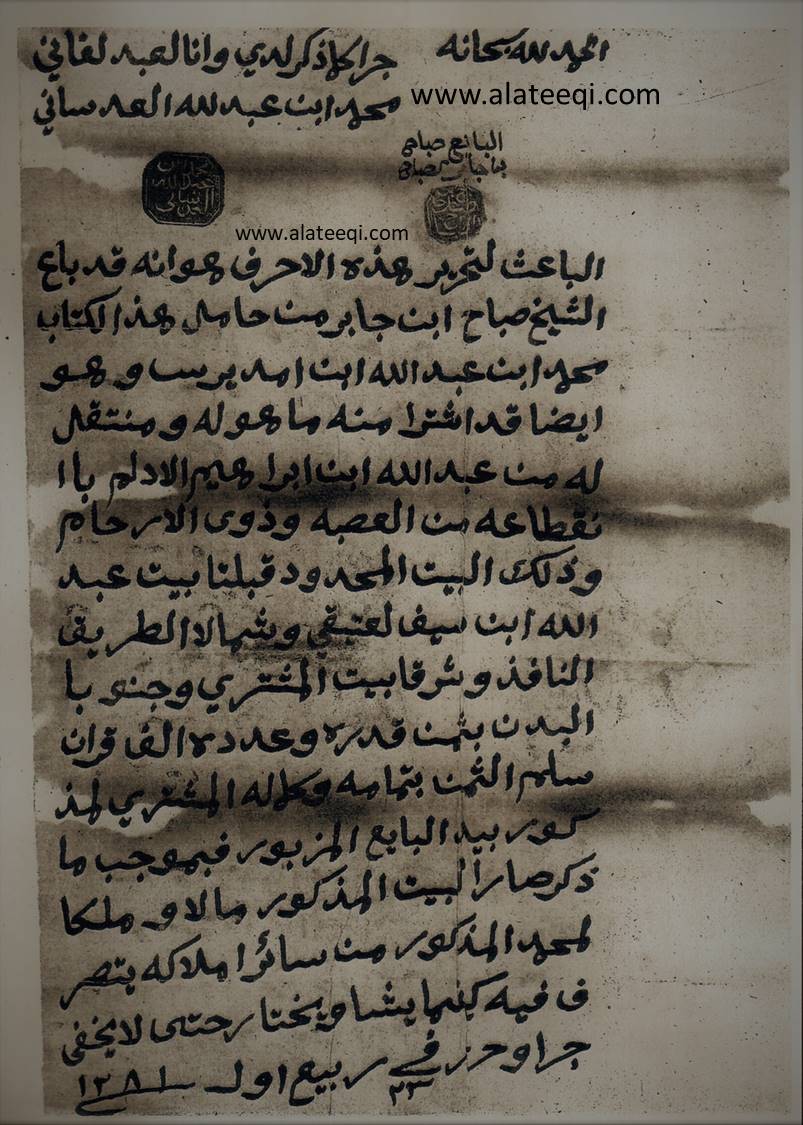 الحمد لله سبحانه
جرا كلما ذكر لدي وانا لعبد لفاني
محمد ابن عبد لله العدساني
www.alateeqi.com
البائع صباح
بن جابر الصباح
محمد بن
عبد الله
العدساني
www.alateeqi.com
الباعث لتحرير هذه الاحرف هو انه قد باع
الشيخ صباح ابن جابر من حامل هذا الكتاب
محمد ابن عبد الله ابن امديرس او هو
ايضا قد اشترا منه ما هو له و منتقل
له من عبد الله ابن ابراهيم الادلم با ا
نقطاعه من العصبه وذوى الارحام
وذلك البيت المحدود قبلتا بيت عبد
الله ابن سيف لعتيقي وشمالا الطريق
النافذ وشرقا بيت المشتري وجنو با
البدن بثمن قدره وعدده الف قران
سلم الثمن بتمامه وكماله المشتري لمذ
كور بيد البايع المزبور فبموجب ما
ذكر صار البيت المذكور مالا و ملكا
لمحمد المذكور من سائر املاكه يتصر
ف فيه كيفما يشا ويختار حتى لا يخفى
جرا وحرر في ٢٣ ربيع اول ١٢٨١